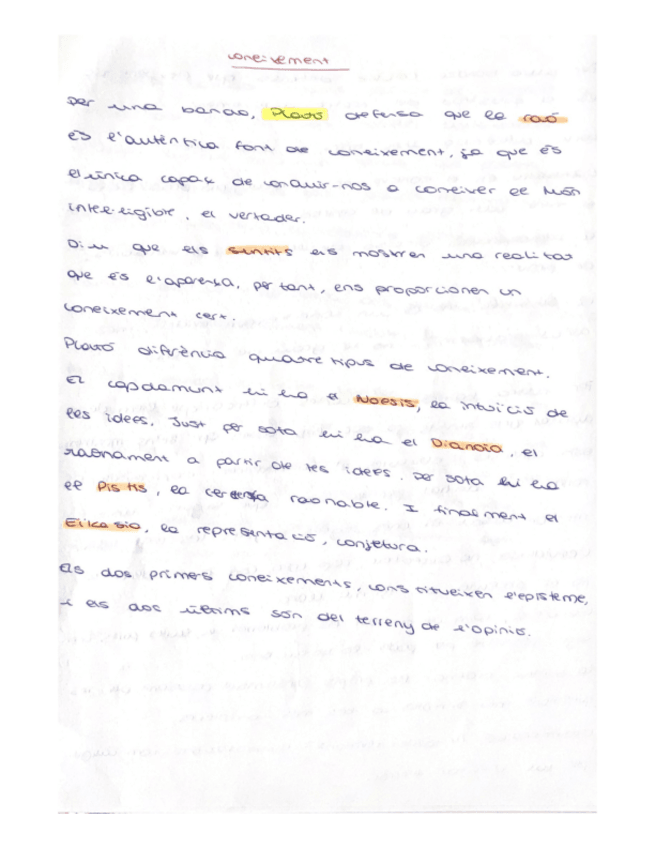 coneixement
Per una banda, Plató defensa que la raó
és l'autèntica font de coneixement, ja que és
l'única capaç de conduir-nos a coneixer el Món
intel·ligible, el vertader.
Diu que els sentits els mostren una realitat
que és l'aparença, per tant, ens proporcionen un
coneixement cert.
Plató diferència quatre tipus de coneixement.
El capdamunt hi ha el Noesis, la intuïció de
les idees. Just per sota hi ha el Dianoia, el
raonament a partir de les idees. Per sota hi ha
el Pistis, la certesa raonable. I finalment el
Eikasia, la representació, conjetura.
Els dos primers coneixements, constitueixen l'episteme,
i els dos últims són del terreny de l'opinió.